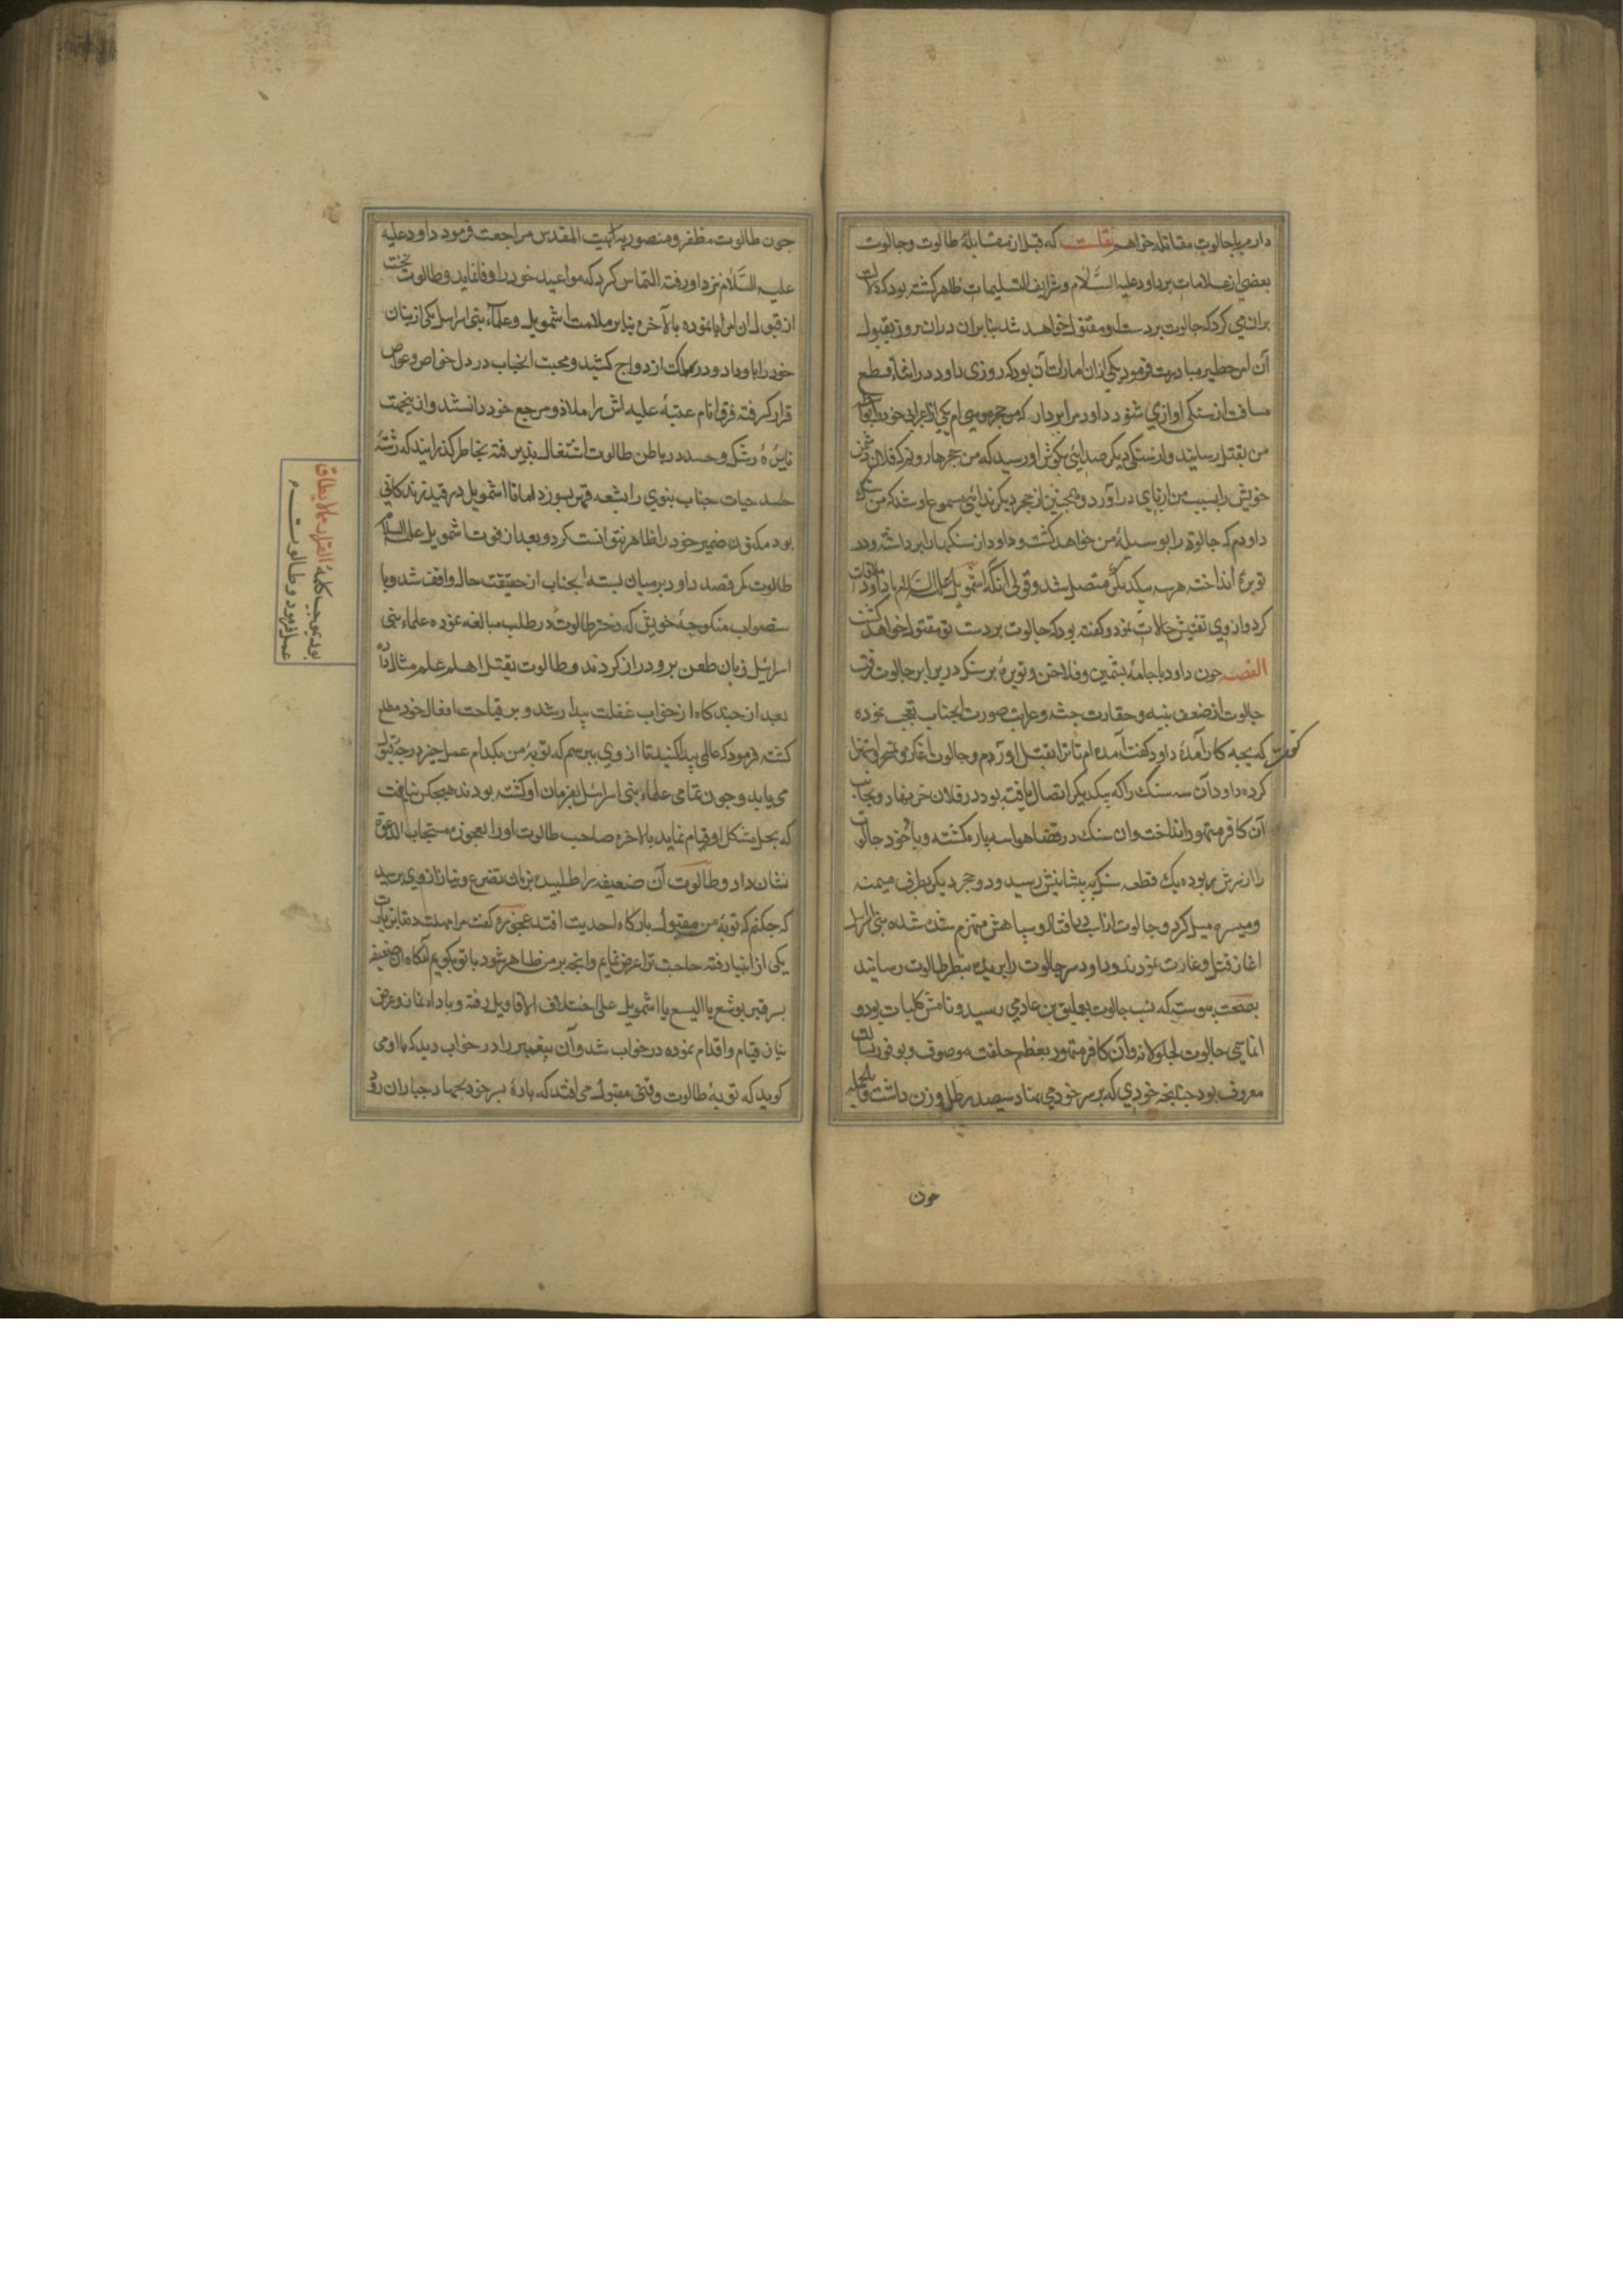 داریم با جالوت مقاتله خواهم نقلست که قبل از مقابلهٔ طالوت و جالوت
بعضی از علامات بر داود علیه السلام و شرایف التسلیمات ظاهر کشته بود که دلالت
بران می کرد که جالوت بر دست او مقتول خواهد شد بنابران دران روز بقبول
آن امر خطیر مبادرت فرمود یکی ازان امارات آن بود که روزی داود در اثناء قطع
مسافت از سنکی اوازی شنود داود مرا بردار که من حجر موسی ام یکی از اعرابی خود را بواسطه
من بقتل رسانید و از سنکی دیکر صدائی بکوش او رسید که من حجر هارونم که فلان دشمن
خویش را بسبب من از پای دراورد و همچنین از حجر دیکر ندائی مسموع او شد که من سنک
داودم که جالوت را بوسیلهٔ من خواهد کشت و داود ان سنکها را برداشته در
توبره انداخت هر سه بیکدیکر متصل شد و قولی آنکه اشمویل علیه السلام با داود ملاقات
کرد و از وی تفتیش حالات نمود و کفته بود که جالوت بر دست تو مقتول خواهد کشت
القصه چون داود با جامهٔ پشمین و فلاخن و توبرهٔ پر سنک در برابر جالوت رفت
جالوت از ضعف بنیه و حقارت جثه و غرابت صورت آنجناب تعجب نموده
کفت که بچه کار آمدهٔ داود کفت آمده ام تا ترا بقتل اورم و جالوت اغاز
کرده داود آن سه سنک را که بیکدیکر اتصال یافته بود در فلاخن نهاد و بجانب
آن کافر متهور انداخت و ان سنک در فضا هوا سه پاره کشته و باد خود جالوت
را از سرش ربوده یک قطعه سنک به پیشانیش رسید و دو حجر دیکر بطرف میمنه
و میسره میل کرد و جالوت از اسب در افتاد و سپاهش منهزم شدن شده بنی اسرائیل
اغاز قتل و غارت نمودند و داود سر جالوت را بریده بنظر طالوت رسانید
بصحت پیوسته که نسب جالوت بعملیق بن عاد می رسید و نامش کلیات بود و
انما سمی جالوت لجلولانه و آن کافر متهور بعظم خلقت موصوف و بوفور بسالت
معروف بود چنانچه خودی که بر سر خود می نهاد سیصد رطل وزن داشت و بالجمله
چون
چون طالوت مظفر و منصور به بیت المقدس مراجعت فرمود داود علیه
علیه السلام نزد او رفته التماس کرد که مواعید خود را وفا نماید و طالوت نخست
از قبول ان امر ابا نموده بالآخره بنابر ملامت اشمویل و علماء بنی اسرائیل یکی از بنات
خود را با و داد و در سلک ازدواج کشید و محبت انجناب در دل خواص و عوام
قرار کرفته فرق انام عتبهٔ علیه اش را ملاذ و مرجع خود دانستند و ازینجهت
نایرهٔ رشک و حسد در باطن طالوت اشتغال پذیرفته بخاطر کذرانید که رشتهٔ
حسد حیات جناب نبوی را بشعه قهر بسوزد اما تا اشمویل در قید زندکانی
بود مکنون ضمیر خود را ظاهر نتوانست کرد و بعد از فوت اشمویل علیه السلام
طالوت کمر قصد داود بر میان بسته انجناب از حقیقت حال واقف شد و با
ستصواب منکوحهٔ خویش که دختر طالوت در طلب مبالغه نموده علماء بنی
اسرائیل زبان طعن برو دراز کردند و طالوت بقتل اهل علم مثال داد
بعد از چند کاه از خواب غفلت بیدار شد و بر قباحت افعال خود مطلع
کشته فرمود که عالمی پیدا کنید تا از وی بپرسم که توبهٔ من بکدام عمل خیر درجهٔ قبول
می یابد و چون تمامی علماء بنی اسرائیل بفرمان او کشته بودند هیچکس نیافت
که بحل مشکل او قیام نماید بالاخره صاحب طالوت او را بعجوزه مستجاب الدعوة
نشان داد و طالوت آن ضعیفه را طلبیده بزبان تضرع و نیاز از وی پرسید
که چکنم که توبهٔ من مقبول بارکاه احدیت افتد عجوزه کفت مرا مهلت ده تا بزیارت
یکی از انبیا رفته حاجت ترا عرض نمایم و انچه بر من ظاهر شود با تو بکویم آنکاه ان ضعیفه
بسر قبر یوشع یا الیسع یا اشمویل علی اختلاف الاقاویل رفته و باداء نماز و عرض
نیاز قیام و اقدام نموده در خواب شد و آن پیغمبر را در خواب دید که با او می
کوید که توبهٔ طالوت وقتی مقبول می افتد که با ده پسر خود بجهاد جباران رود
بود بموجب کلمهٔ الفرار مما لا یطاق
عمل فرمود و طالوت